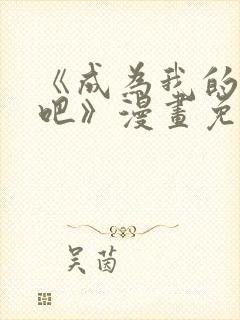 《成为我的
吧》漫畫免
吴茵